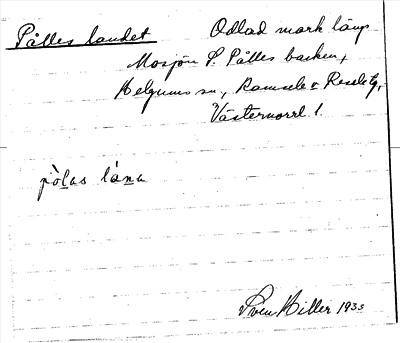 Pålles landet
Odlad mark längs
Mosjön S. Pålles backen,
Helgums sn, Ramsele o Resele tg,
Västernorrl. l.
pòlas lána
Sven Hiller 1933